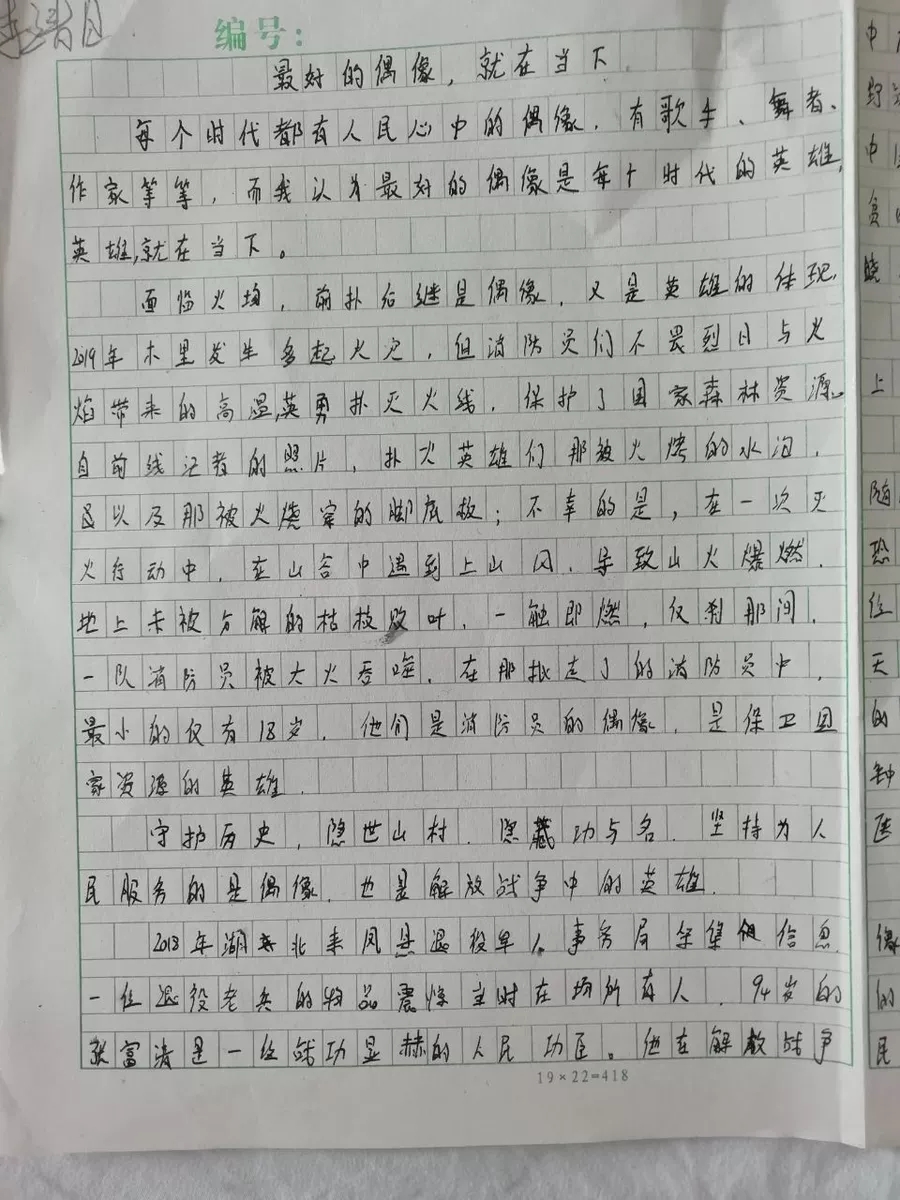 编号：
最好的偶像，就在当下
每个时代都有人民心中的偶像，有歌手、舞者、
作家等等，而我认为最好的偶像是每个时代的英雄，
英雄，就在当下。
面临火场，前扑后继是偶像，又是英雄的体现，
2019年木里发生多起火灾，但消防员们不畏烈日与火
焰带来的高温，英勇扑灭火线，保护了国家森林资源。
自前线记者的照片，扑火英雄们那被火烤的水泡，
以及那被火烧穿的脚底板；不幸的是，在一次灭
火行动中，在山谷中遇到上山风，导致山火爆燃，
地上未被分解的枯枝败叶，一触即燃，仅刹那间，
一队消防员被大火吞噬，在那批走了的消防员中，
最小的仅有18岁，他们是消防员的偶像，是保卫国
家资源的英雄．
守护历史，隐世山村，隐藏功与名，坚持为人
民服务的是偶像，也是解放战争中的英雄．
2018年湖北来凤县退役军人事务局采集信息
一位退役老兵的物品震惊当时在场所有人，94岁的
张富清是一位战功显赫的人民功臣。他在解放战争
19×22=418
中
野
中
晓
上
随
恐
位
天
的
医
偶
的
民